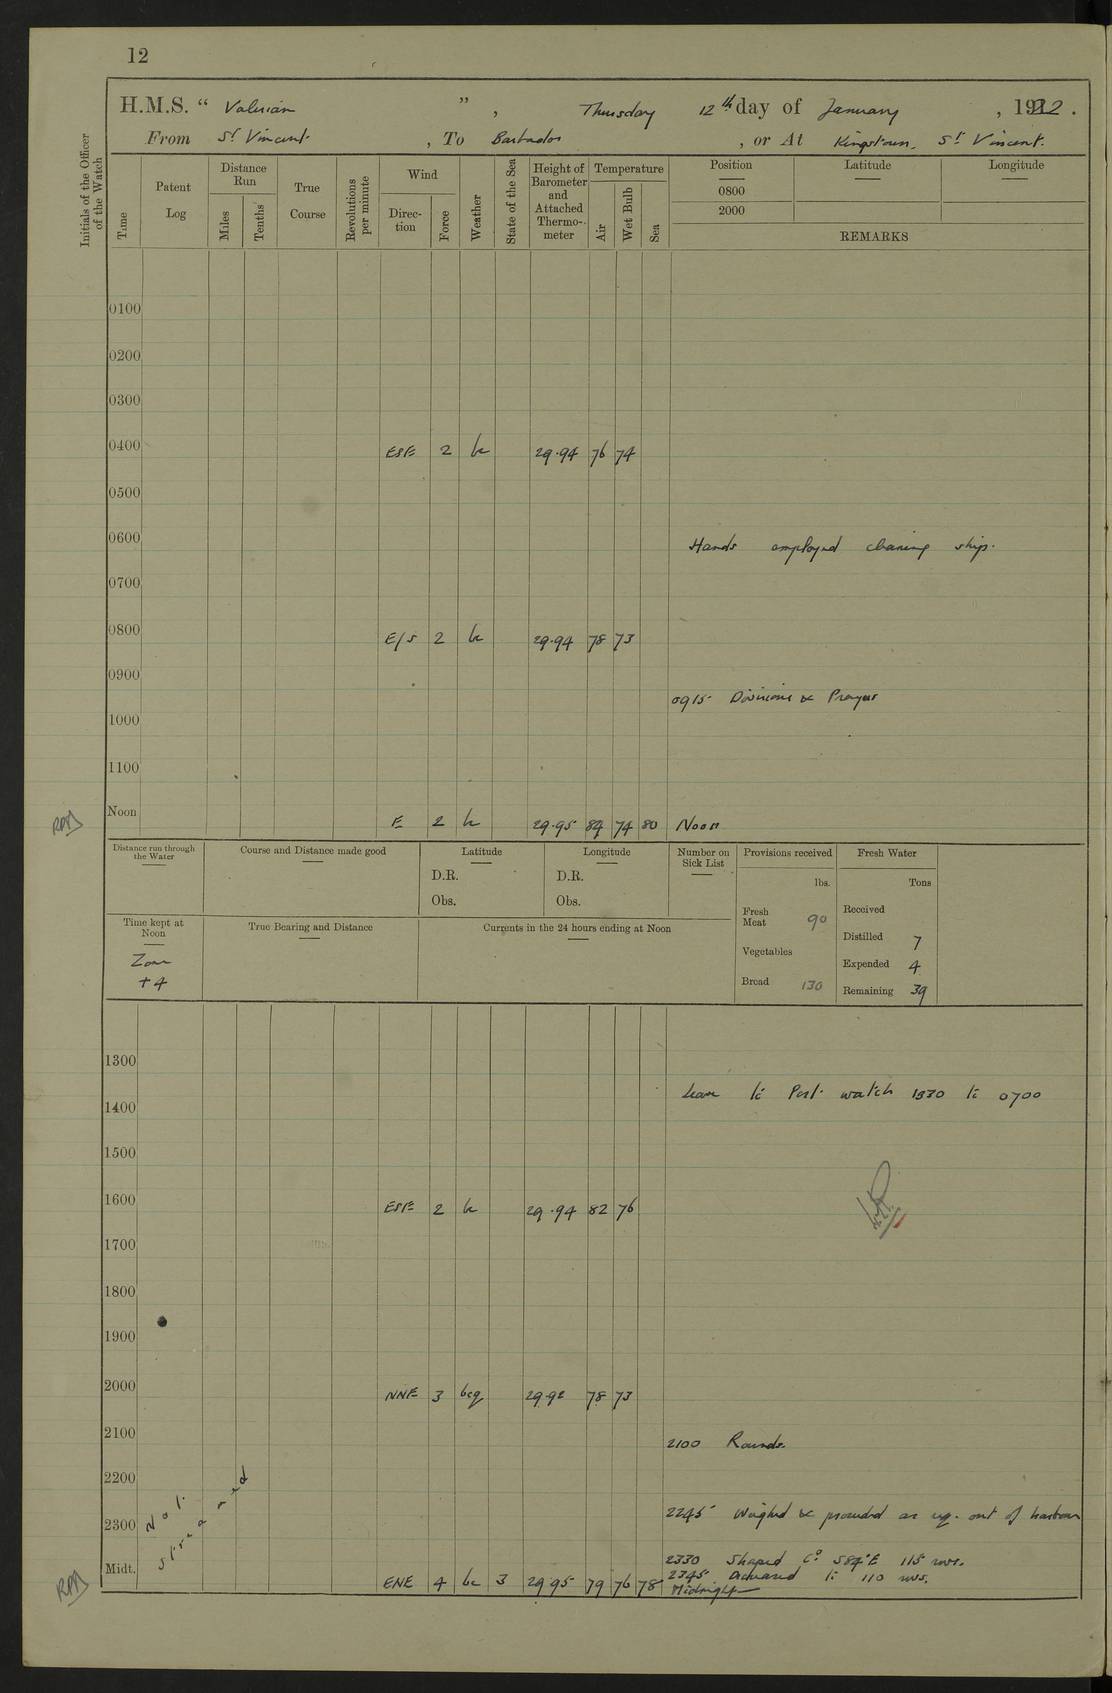 12
H.M.S. “ Valerian ” , Thursday 12th day of January , 1922 .
From St Vincent , To Barbados , or At Kingstown. St Vincent.
Initials of the Officer of the Watch
Time
Patent Log
Distance Run
Miles
Tenths
True Course
Revolutions per minute
Wind
Direction
Force
Weather
State of the Sea
Height of Barometer and Attached Thermometer
Temperature
Air
Wet Bulb
Sea
Position Latitude Longitude
0800
2000
REMARKS
0100
0200
0300
0400 ESE 2 bc 29.94 76 74
0500
0600 Hands employed cleaning ship.
0700
0800 E/S 2 bc 29.94 78 73
0900
0915 Divisions & Prayers
1000
1100
Noon E 2 bc 29.95 84 74 80 Noon
Distance run through the Water
Course and Distance made good
Latitude
D.R.
Obs.
Longitude
D.R.
Obs.
Number on Sick List
Provisions received
lbs.
Fresh Meat 90
Vegetables
Bread 130
Fresh Water
Tons
Received
Distilled 7
Expended 4
Remaining 39
Time kept at Noon
Zone
+4
True Bearing and Distance
Currents in the 24 hours ending at Noon
1300
Leave to Port watch 1330 to 0700
1400
1500
1600 ESE 2 bc 29.94 82 76
1700
1800
1900
2000 NNE 3 bcq 29.92 78 73
2100
2100 Rounds.
2200
2245 Weighed & proceeded as req. out of harbour
2300
Not streamed
2330 Shaped Co. S84°E 115 revs.
2345 Decreased to 110 revs.
Midt. ENE 4 bc 3 29.95 79 76 78 Midnight